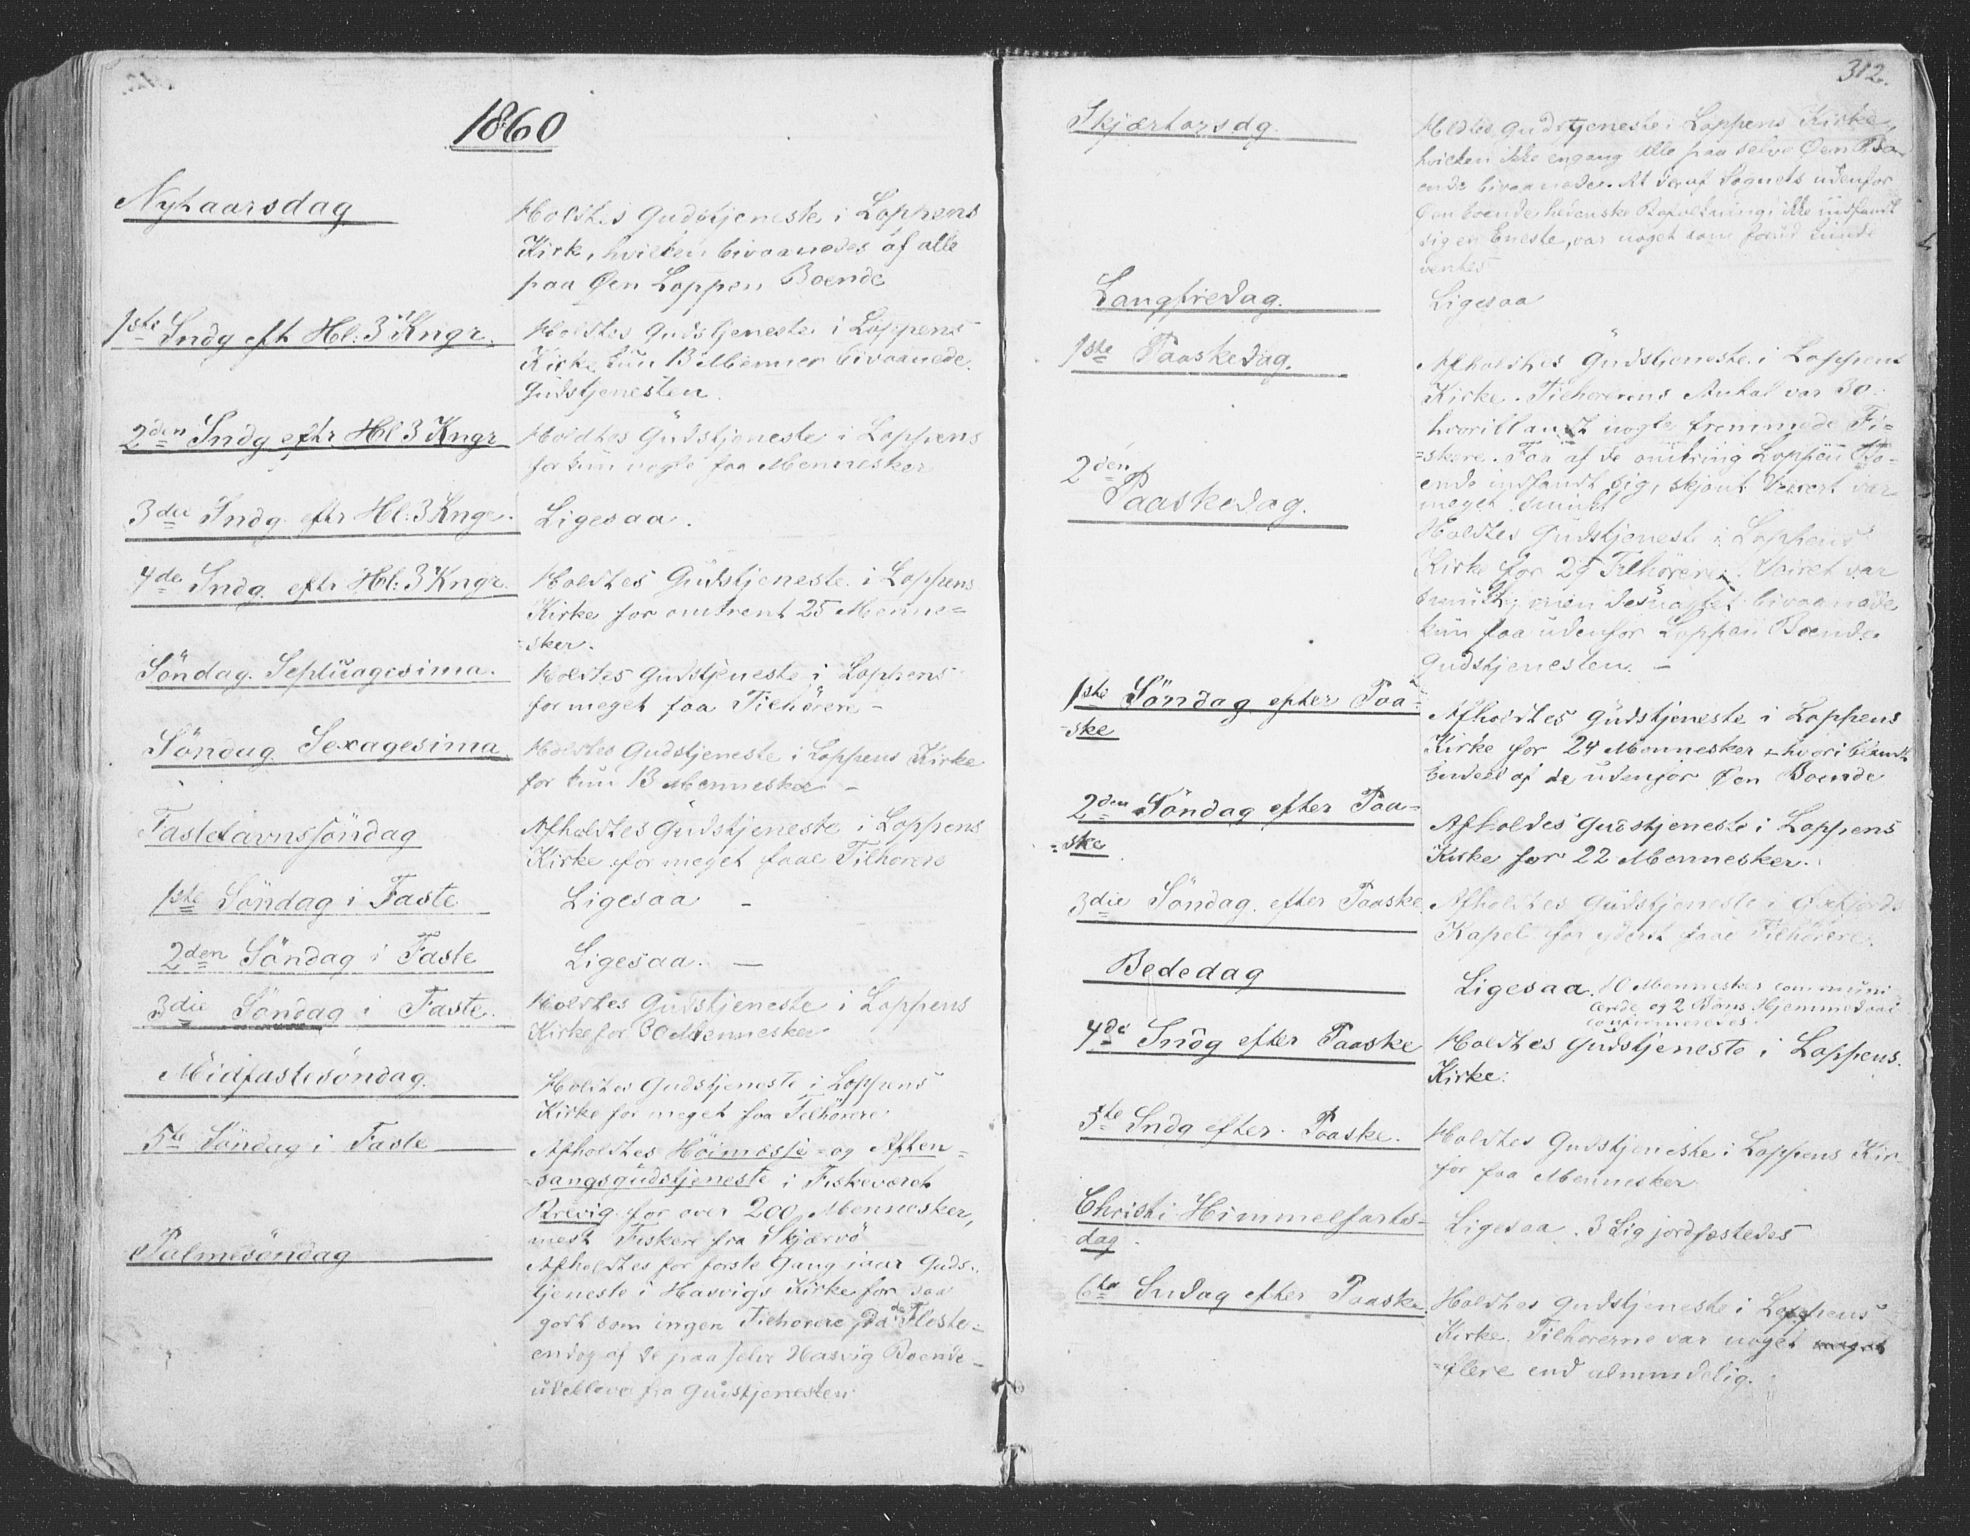 1860
Nytaarsdag
Holdtes Gudstjeneste i Loppens
Kirke, hvilken bivaanedes af alle
paa Øen Loppen Boende
1ste Sndg eft Hl: 3 Kngr.
Holdtes Gudstjeneste i Loppens
Kirke kun 13 Menner bivaanede
Gudstjenesten.
2den Sndg eftr Hl 3 Kngr
Holdtes Gudstjeneste i Loppens
for kun nogle faa Mennesker
3die Sndg eftr Hl: 3 Kngr.
Ligesaa.
4de Sndg. eftr Hl: 3 Kngr.
Holdtes Gudstjeneste i Loppens
Kirke for omtrent 25 Menne=
=sker.
Söndag Septuagesima.
Holdtes Gudstjeneste i Loppens
for meget faa Tilhörere -
Söndag Sexagesima
Holdtes Gudstjeneste i Loppens Kirke
for kun 13 Mennesker -
Fastelavnssöndag
Afholdtes Gudstjeneste i Loppens
Kirke for meget faae Tilhorere
1ste Söndag i Faste
Ligesaa -
2den Söndag i Faste
Ligesaa. -
3die Söndag i Faste.
Holdtes Gudstjeneste i Loppens
Kirke for 30 Mennesker
Midfastesöndag.
Holdtes Gudstjeneste i Loppens
Kirke for meget faa Tilhörere
5te Söndag i Faste
Afholdtes Höimesse- og Aften=
=sangsgudstjeneste i Fiskeværet
Brevig for over 200 Mennesker,
mest Fiskere fra Skjærvö
Palmesöndag
Afholdtes for forste Gang iaar Guds=
tjeneste i Hasvigs Kirke for saa
godt som ingen Tilhorere da de Fleste=
endog af de paa selve Hasvig Boende-
udebleve fra Gudstjenesten
312.
Skjærtorsdg.
Holdtes Gudstjeneste i Loppens Kirke,
hvilken ikke engang Alle paa selve Øen Bo=
ende bivaanede. At der af Sognets udenfor
Øen boende hedenske Befolkning ikke indfandt
sig en Eneste, var noget som forud kunde
ventes
Langfredag.
Ligesaa
1ste Paaskedag.
Afholdtes Gudstjeneste i Loppens
Kirke. Tilhorerens Antal var 30.
hvoriblandt nogle fremmede Fi=
=skere. Faa af de omkring Loppen Bo=
ende indfandt sig, skjönt Veiret var
meget smukt
2den
Paaskedag.
Holdtes Gudstjeneste i Loppens
Kirke for 29 Tilhörere. Veiret var
smukt; men desuagtet bivaanede
kun faa udenfor Loppen Boende
Gudstjenesten. -
1ste Söndag efter Paa=
=ske
Afholdtes Gudstjeneste i Loppens
Kirke for 24 Mennesker hvoriblandt
Endeel af de udenfor Øen Boende
2den Söndag efter Paa=
=ske
Afholdes Gudstjeneste i Loppens
Kirke for 22 Mennesker.
3die Söndag efter Paaske
Afholdtes Gudstjeneste i Öxfjords
Kapel for yderst faae Tilhörere.
Bededag
Ligesaa. 10 Mennesker communi
cerde og 2 Börns Hjemmedaab
confirmeredes.
4de Sndg efter Paaske
Holdtes Gudstjeneste i Loppens
Kirke.
5te Sndg efter Paaske.
Holdtes Gudstjeneste i Loppens Kir=
for faa Mennesker
Christi Himmelfarts=
dag.
Ligesaa. 3 Lig jordfæstedes
6te Sndag efter Paaske
Holdtes Gudstjeneste i Loppens
Kirke. Tilhorerne var noget meget
=flere end almindelig.